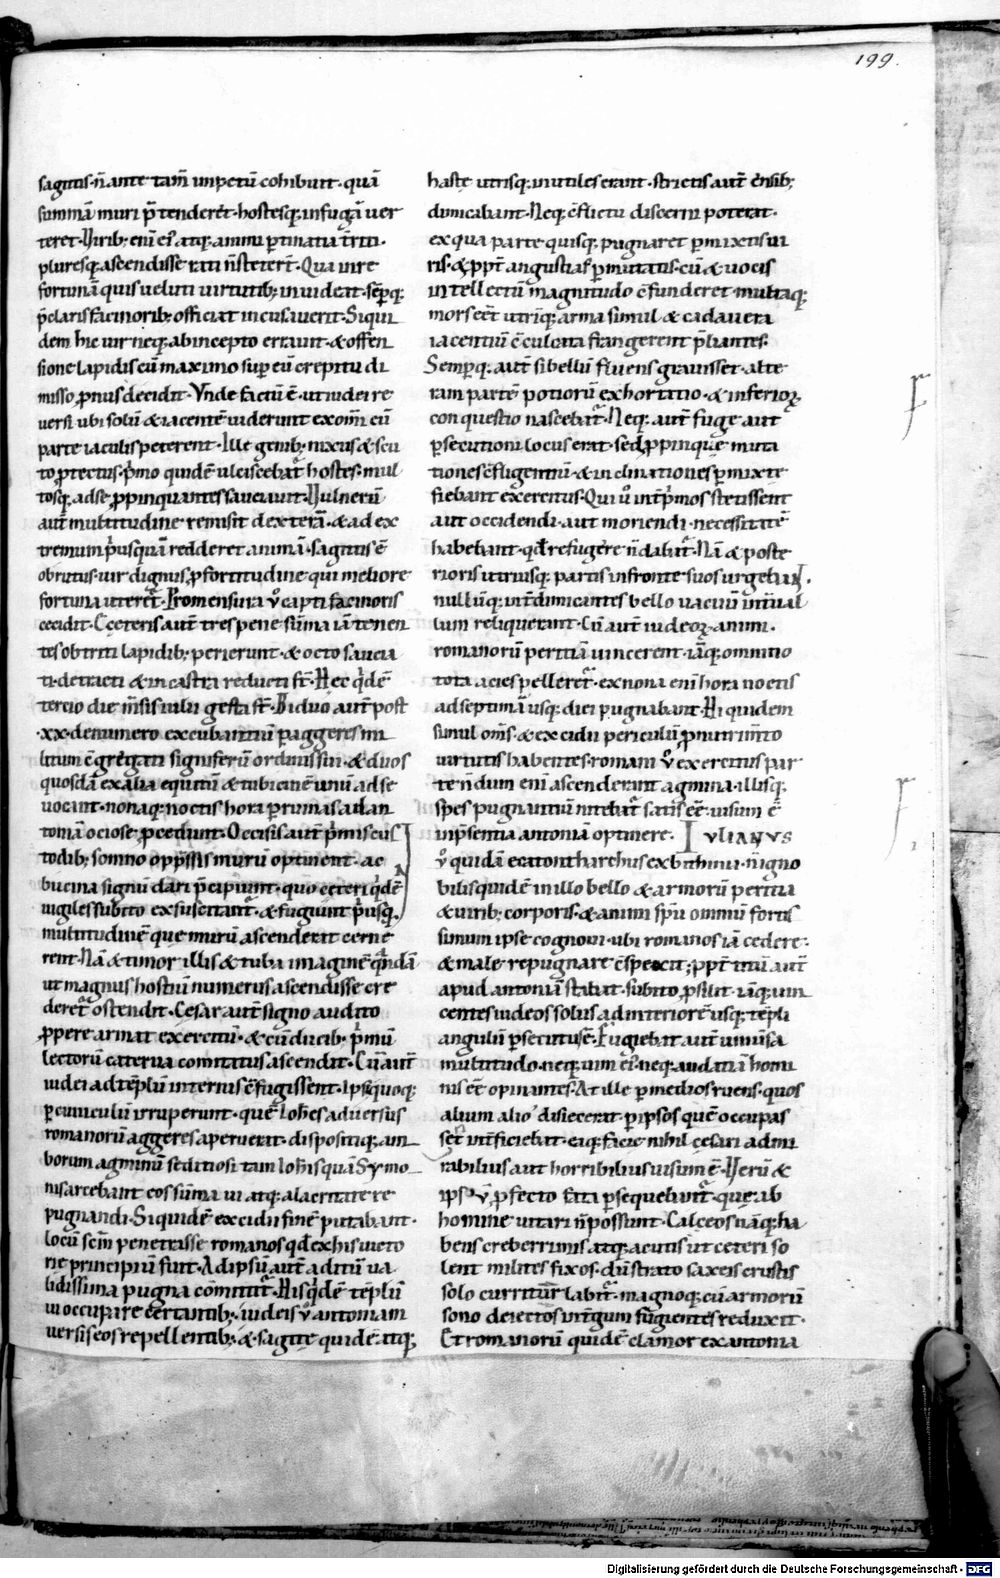 199.
sagittis· n̄ ante tam̄ impetū cohibuit· quā
summā muri p̄tenderet· hostesq; in fugā uer
teret· Virib; eni ei᾽ atq; animi ptinatia t̄rriti·
pluresq; ascendisse rati n̄ steter̄t· Qua in re
fortunā quis ueluti uirtutib; inuideat· sēpq;
p̄claris facinorib; officiat incusauerit· Siqui
dem hic uir neq; ab incepto errauit· & offen
sione lapidis cū maximo sup eū crepitu di
misso pronus decidit· Vnde factū ē· ut iudei re
uersi ubi solū & iacentē uiderunt ex omni eū
parte iaculis peterent· Ille genib; nixus & scu
to protectus· p̄mo quidē ulciscebat᾽ hostes· mul
tosq; ad se propinquantes sauciauit· Vulnerū
aut̄ multitudine remisit dexterā· & ad ex
tremum p̄usquā redderet animā· sagittis ē
obrutus· uir dignus p fortitudine qui meliore
fortuna uteret᾽· Pro mensura v̄ capti facinoris
cecidit· Cęteris aut̄ tres pene sūma iā tenen
tes obtriti lapidib; perierunt· & octo saucia
ti· detracti & in castra reducti st̄· Hec q̇dē
tercio die m̄sis iulii gesta st̄· Biduo aut̄ post
·xx· de numero excubantiū p aggeres mi
litum c̄gregati signiferū ordinis sui· & duos
quosdā ex alia equitū & tubicinē unū ad se
uocant· nonaq; noctis hora p ruinas ad an
toniā ociose procedunt· Occisis aut̄ p̄mis cus
todib; somno opp̄ssis murū optinent· ac
bucina signū dari p̄cipiunt· quo ceteri q̇dē
uigiles subito exsuscitant᾽· & fugiunt p̄usq;
multitudinē que murū ascenderat cerne
rent· Nā & timor illis & tuba imaginē q̄ndā
ut magnus hostiū numerus ascendisse cre
deret᾽ ostendit· Cesar aut̄ signo audito
ppere armat exercitū· & cū ducib; p̄mū
lectorū caterua comitatus ascendit· Cū aut̄
iudei ad tēplū interius c̄fugissent· ipsiquoq;
p cuniculū irruperunt· quē Ioh̄es aduersus
romanorū aggeres aperuerat· dispositiq; am
borum agminū seditiosi tam Ioh̄is quā Symo
nis arcebant eos sūma ui atq; alacritate re
pugnandi· Siquidē excidii finē putabant·
locū sc̄m penetrasse romanos qđ ex his uicto
rie principiū fuit· Ad ipsū aut̄ aditū ua
lidissima pugna comittit᾽· His q̇dē tēplū
ui occupare certantib;· iudeis v̄ antoniam
uersis eos repellentib;· & sagitte quidē atq;
haste utrisq; inutiles erant· strictis aut̄ ensib;
dimicabant· Neq; c̄flictu discerni poterat·
ex qua parte quisq; pugnaret pmixtis ui
ris· & ppt̄ angustias pmutatis· cū & uocis
intellectū magnitudo c̄funderet· multaq;
mors eēt utriq; arma simul & cadauera
iacentiū c̄culcata frangerent p̄liantes·
Semperq; aut̄ si belli fluens grauisset· alte
ram partē potiorū exhortatio· & inferiorꝝ
conquestio nascebat᾽· Neq; aut̄ fuge aut
psecutioni locus erat· sed propinque muta
tiones c̄fligentiū· & inclinationes pmixte
fiebant exercitus· Qui v̄ int̄ p̄mos stetissent
aut occidendi· aut moriendi· necessitatē
habebant· qđ refugere n̄ dabat᾽· Nā & poste
rioris utriusq; partis in fronte suos urgebant·
nullūq; int̄ dimicantes bello uacuū int̄ual
lum reliquerant· Cū aut̄ iudeorꝝ animi·
romanorū peritiā uincerent· iāq; omnino
tota acies pelleret᾽· ex nona eni hora noctis
ad septimā usq; diei pugnabant· Hi quidem
simul om̄s· & excidii periculū pro nutrim̄to
uirtutis habentes· romani v̄ exercitus par
te· n̄dum eni ascenderant agmina· illisq;
spes pugnantiū nitebat᾽ satis eē· uisum ē
inp̄sentia antonia optinere· IVLIANVS
v̄ quidā ecatontharchus ex bithinia· n̄ igno
bilis quidē in illo bello & armorū peritia
& uirib; corporis· & animi sp̄u omniū fortis
simum ipse cognoui· ubi romanos iā cedere·
& male repugnare c̄spexit; ppt̄ titū aut̄
apud antoniā stabat· subito prosiluit· iāq; uin
centes iudeos solus ad interiorē usq; tēpli
angulū psecutus ē· Fugiebat aut̄ uniuersa
multitudo· neq; uim ei᾽· neq; audatiā homi
nis eē opinantes· At ille p medios ruens· quos
alium alio disiecerat· p ipsos quē occupas
set int̄ficiebat· eaq; facie nihil cesari admi
rabilius aut horribilius uisum ē· Verū &
ipsū v̄ profecto fata psequebant᾽· que ab
homine uitari n̄ possunt· Calceos nāq; ha
bens creberrimis atq; acutis ut ceteri so
lent milites fixos· dū strato saxeis crustis
solo curritur labit᾽· magnoq; cū armorū
sono deiectus int̄gum fugientes reduxit·
Et romanorū quidē clamor ex antonia
Digitalisierung gefördert durch die Deutsche Forschungsgemeinschaft - DFG